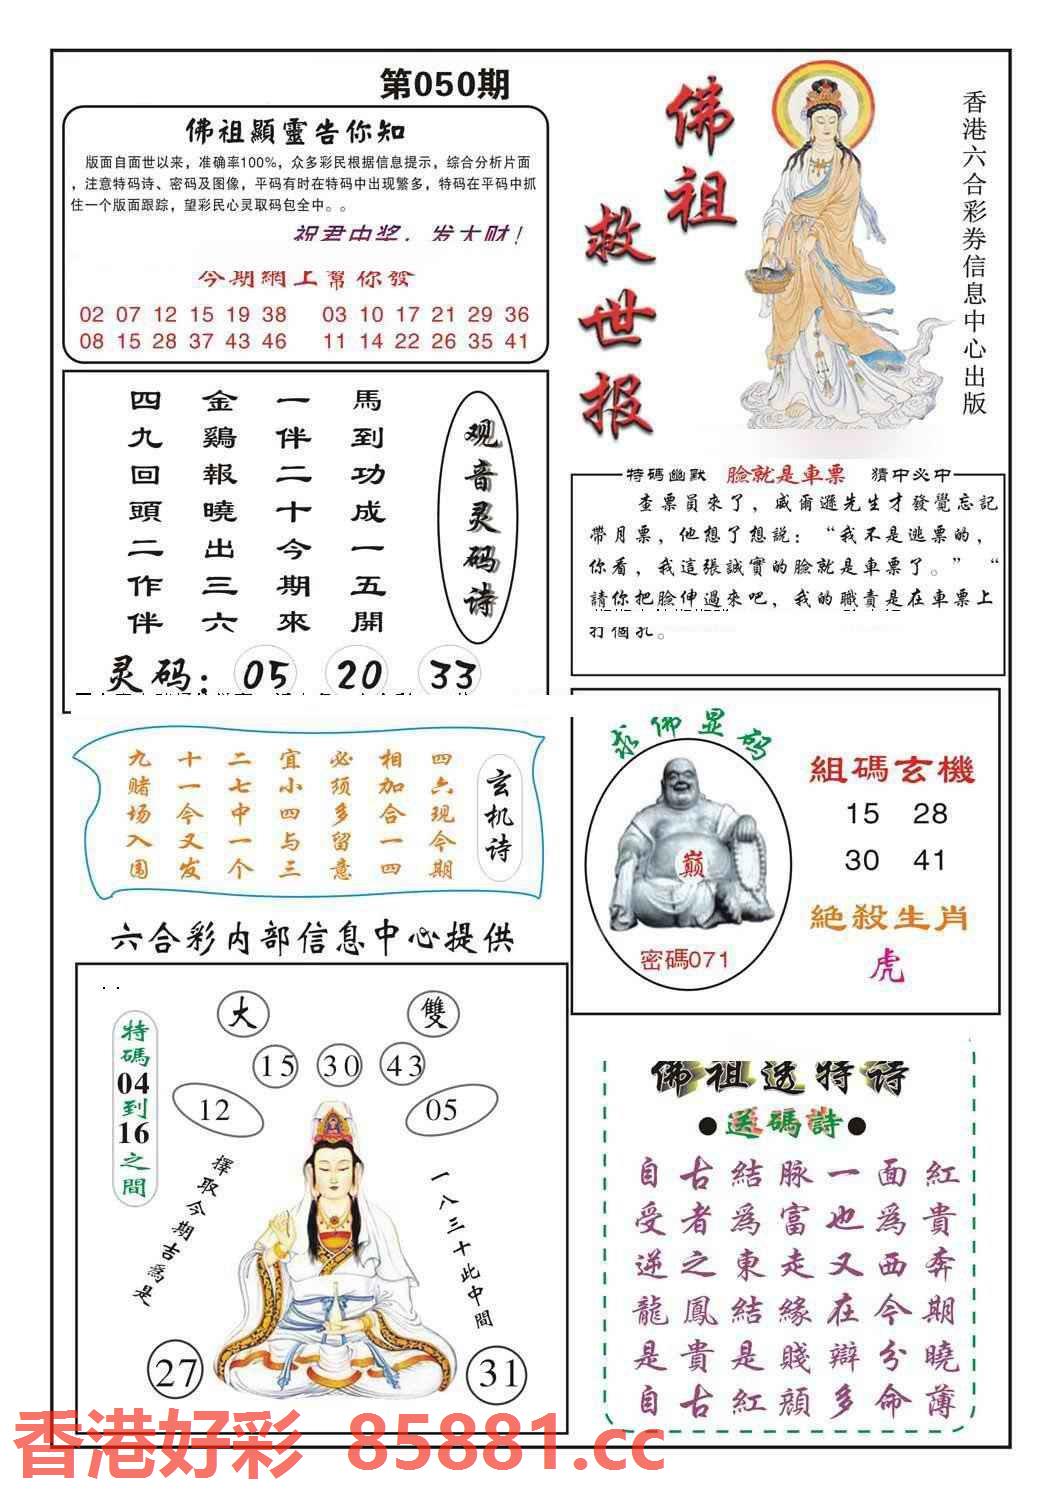 第050期
佛祖顯靈告你知
版面自面世以来，准确率100%，众多彩民根据信息提示，综合分析片面
，注意特码诗、密码及图像，平码有时在特码中出现繁多，特码在平码中抓
住一个版面跟踪，望彩民心灵取码包全中。。
祝君中奖，发大财！
今期網上幫你發
02 07 12 15 19 38 03 10 17 21 29 36
08 15 28 37 43 46 11 14 22 26 35 41
佛祖
救世报
香港六合彩券信息中心出版
观音灵码诗
馬到功成一五開
一伴二十今期來
金鷄報曉出三六
四九回頭二作伴
灵码：05 20 33
特碼幽默 臉就是車票 猜中必中
查票員來了，威爾遜先生才發覺忘記
帶月票，他想了想説：“我不是逃票的，
你看，我這張誠實的臉就是車票了。” “
請你把臉伸過來吧，我的職責是在車票上
打個孔。
玄机诗
四六现今期
相加合一四
必须多留意
宜小四与三
二七中一个
十一今又发
九赌场入围
求佛显码
巅
密碼071
組碼玄機
15 28
30 41
絕殺生肖
虎
六合彩内部信息中心提供
特碼04到16之間
大 雙
15 30 43
12 05
擇取今期吉爲是
一八三十此中間
27 31
佛祖透特诗
●送碼詩●
自古結脉一面紅
受者為富也為貴
逆之東走又西奔
龍鳳結緣在今期
是貴是賤辯分曉
自古紅顔多命薄
香港好彩 85881.cc